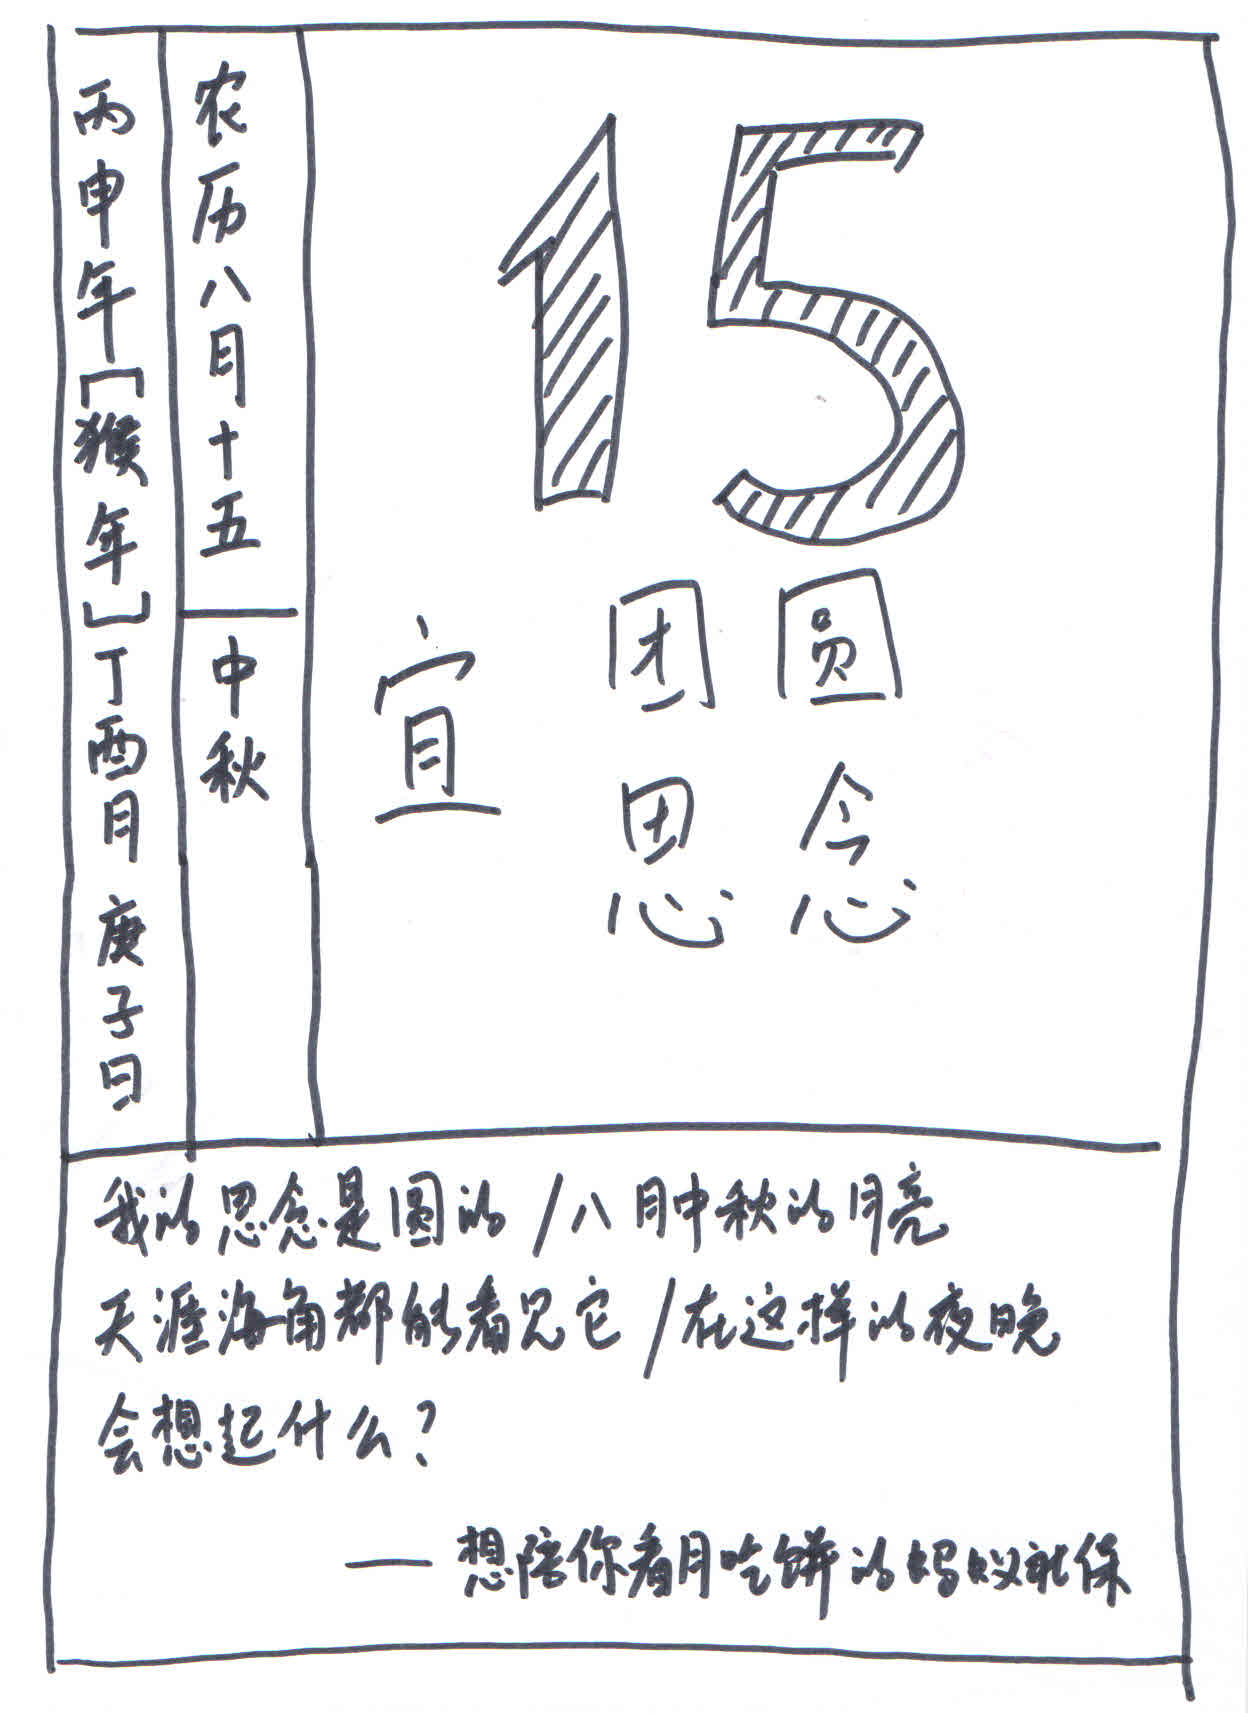 丙申年【猴年】丁酉月 庚子日
农历八月十五
中秋
15
宜
团圆
思念
我的思念是圆的/八月中秋的月亮
天涯海角都能看见它/在这样的夜晚
会想起什么？
——想陪你看月吃饼的蚂蚁社保